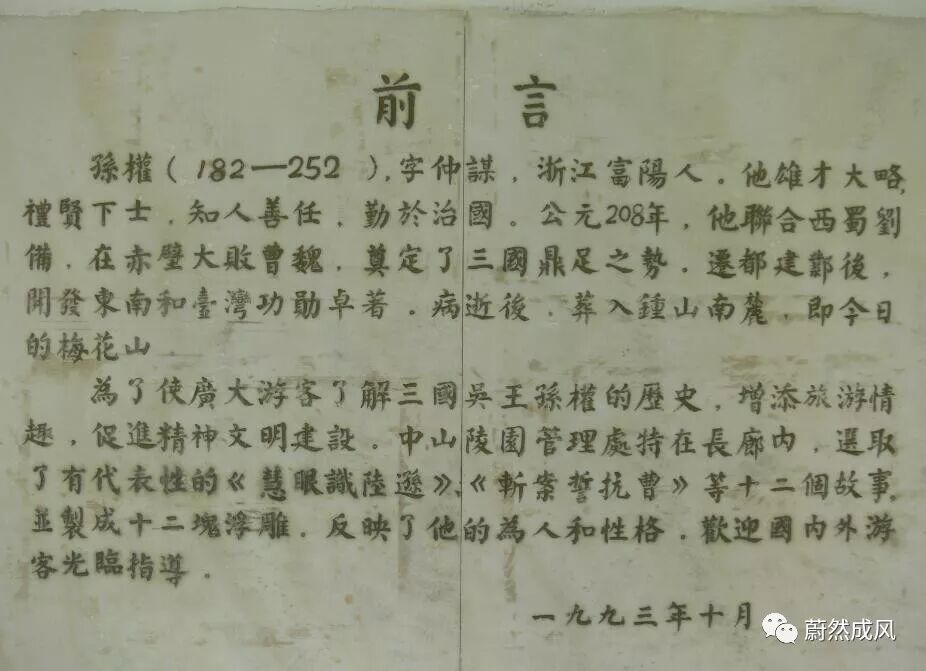 前言
孫權(182—252),字仲謀,浙江富陽人。他雄才大略,
禮賢下士,知人善任,勤於治國。公元208年,他聯合西蜀劉
備,在赤壁大敗曹魏,奠定了三國鼎足之勢。遷都建鄴後,
開發東南和臺灣功勛卓著。病逝後,葬入鍾山南麓,即今日
的梅花山.
為了使廣大游客了解三國吳王孫權的歷史,增添旅游情
趣,促進精神文明建設.中山陵園管理處特在長廊內,選取
了有代表性的《慧眼識陸遜》、《斬案誓抗曹》等十二個故事,
並製成十二塊浮雕.反映了他的為人和性格.歡迎國內外游
客光臨指導.
一九九三年十月
蔚然成风